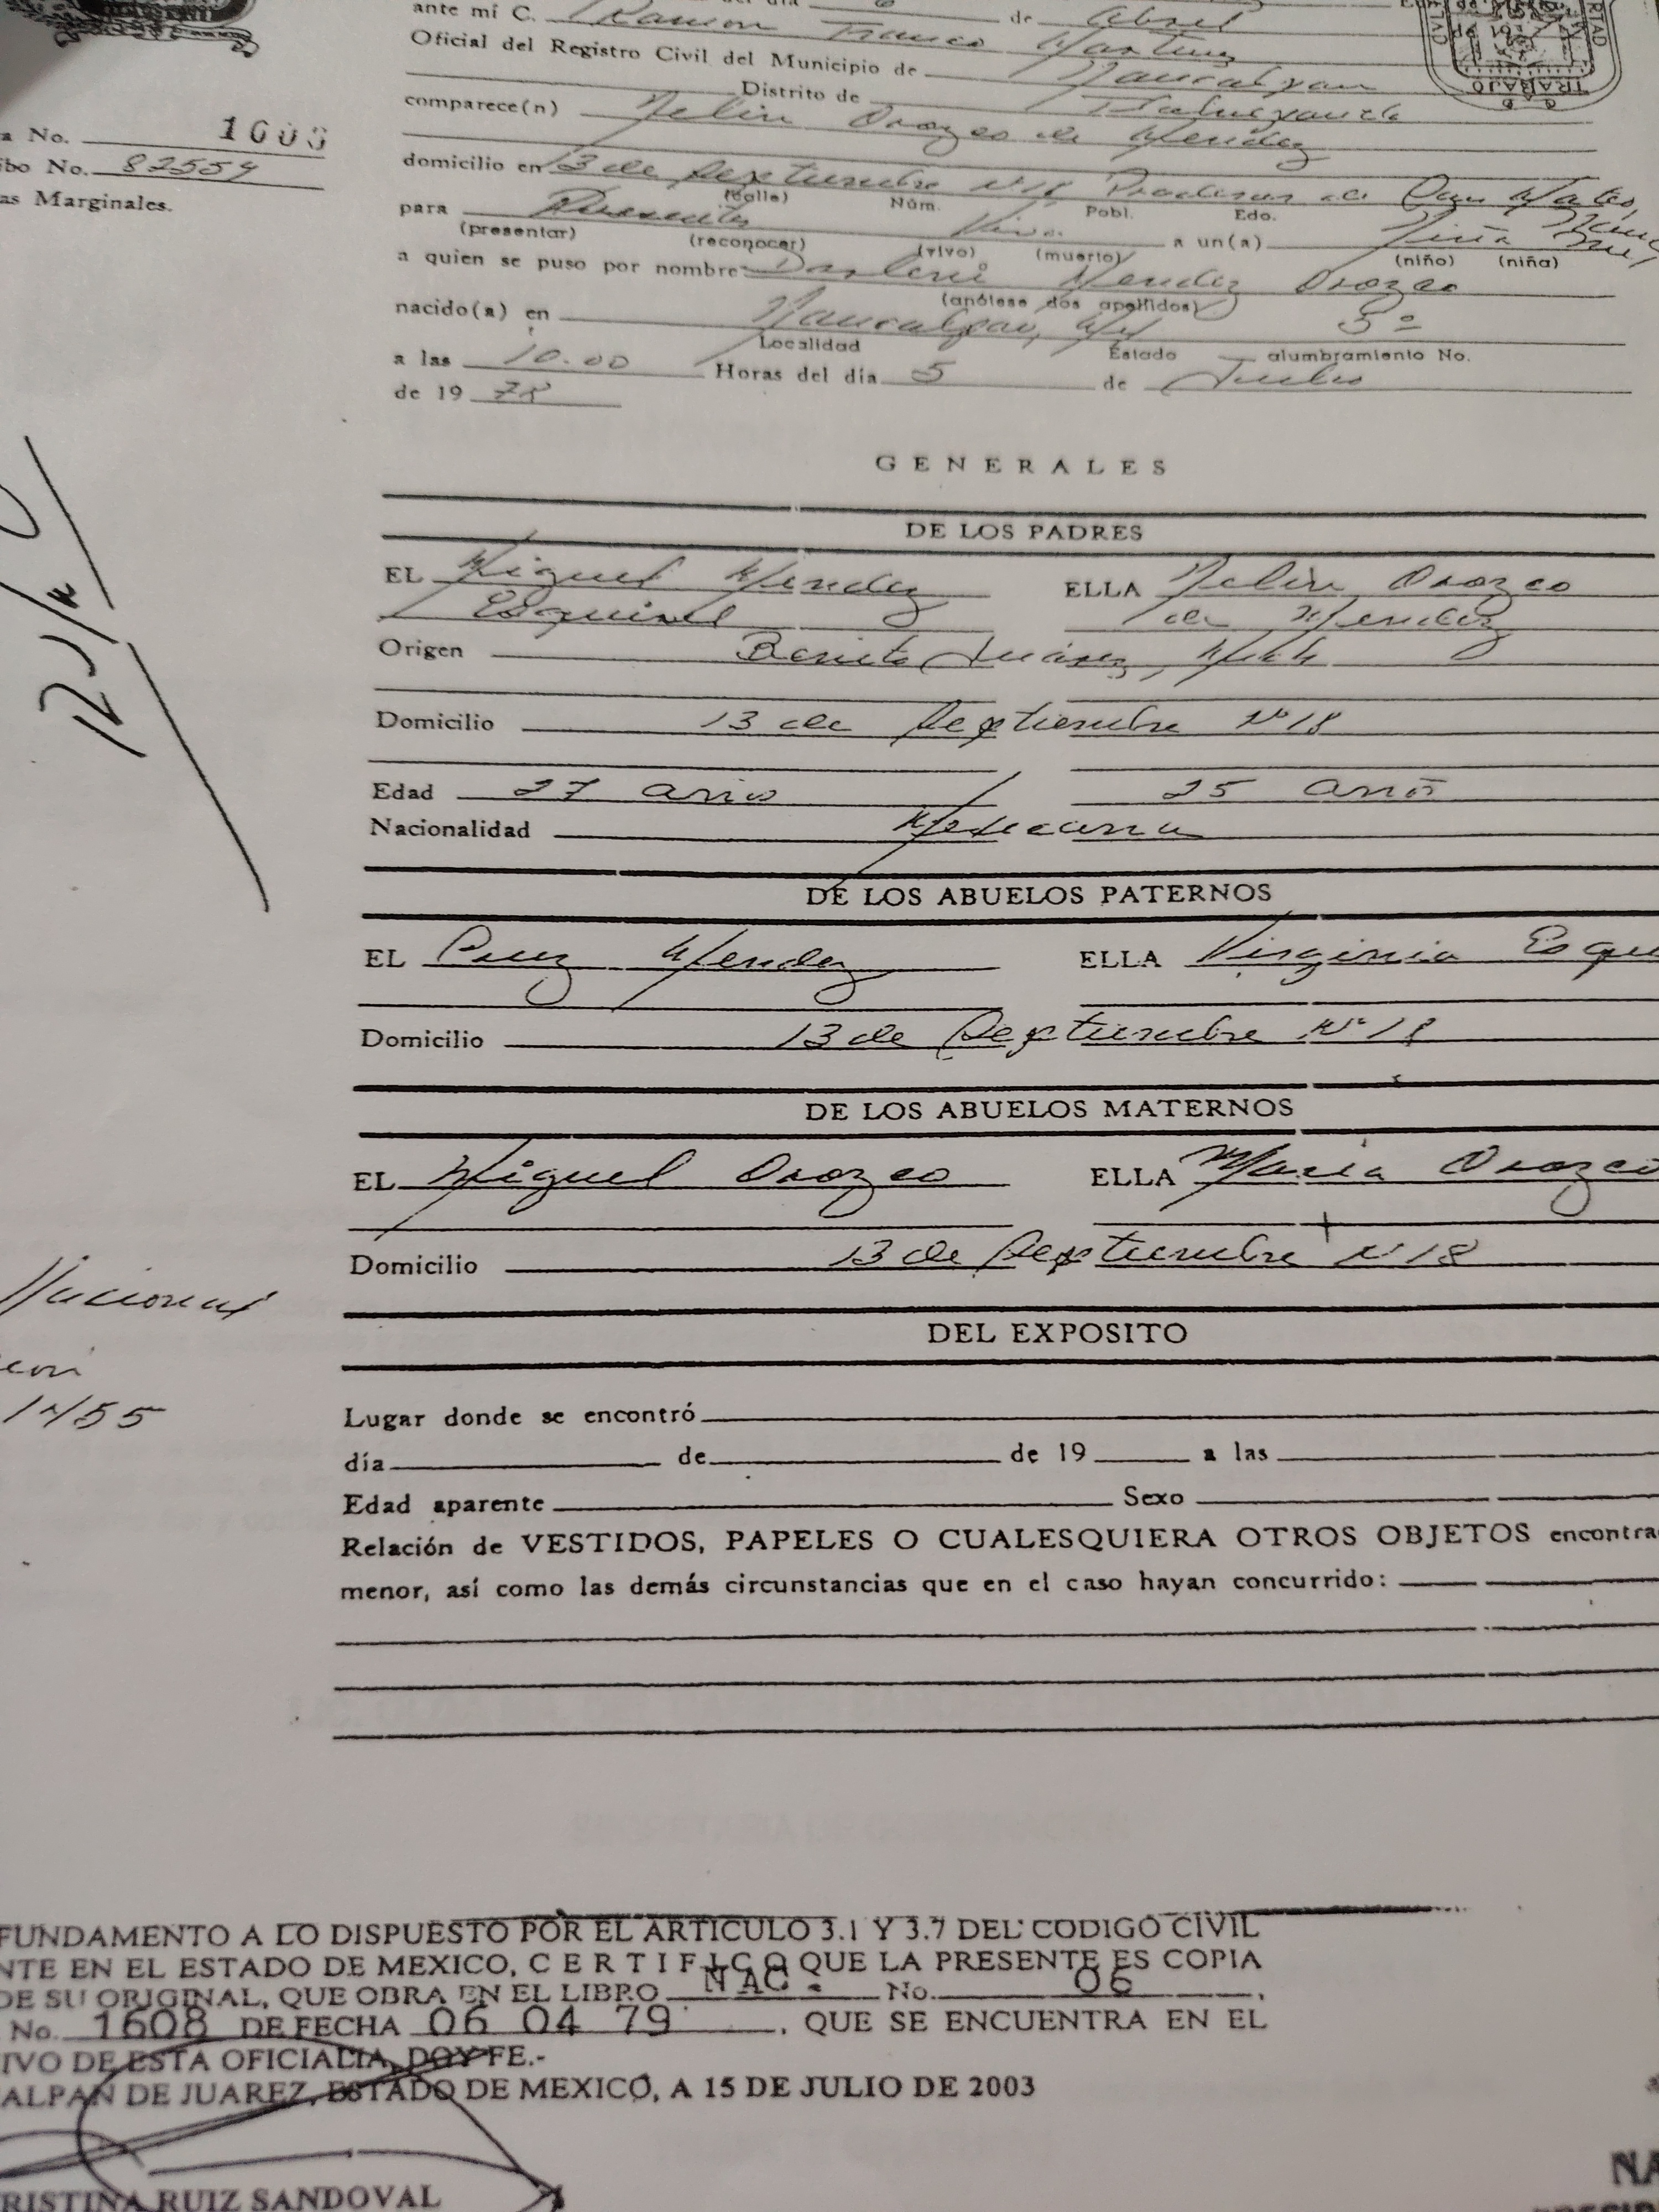 ante mí C. Ramon Franco Martinez de Abril
Oficial del Registro Civil del Municipio de Naucalpan
Distrito de Tlalnepantla
comparece(n) Orozco de Mendez
domicilio en 13 de Septiembre Nº 18 San Mateo,
(calle) Núm. Pobl. Edo.
para Presentar Viva a un(a) Niña
(presentar) (reconocer) (vivo) (muerto) (niño) (niña)
a quien se puso por nombre Mendez Orozco
(anótese dos apellidos)
nacido(a) en Naucalpan, 3º
Localidad Estado alumbramiento No.
a las 10.00 Horas del día 5 de
de 19
a No. 1608
ibo No. 82554
as Marginales.
GENERALES
DE LOS PADRES
EL Miguel Mendez ELLA Orozco
Esquivel de Mendez
Origen Benito Juárez, Mich
Domicilio 13 de Septiembre Nº 18
Edad 27 años 25 años
Nacionalidad Mexicana
DE LOS ABUELOS PATERNOS
EL Cruz Mendez ELLA Virginia Esqu
Domicilio 13 de Septiembre Nº 18
DE LOS ABUELOS MATERNOS
EL Miguel Orozco ELLA Maria Orozco
Domicilio 13 de Septiembre Nº 18
DEL EXPOSITO
Lugar donde se encontró
día de de 19 a las
Edad aparente Sexo
Relación de VESTIDOS, PAPELES O CUALESQUIERA OTROS OBJETOS encontra
menor, así como las demás circunstancias que en el caso hayan concurrido:
FUNDAMENTO A LO DISPUESTO POR EL ARTICULO 3.1 Y 3.7 DEL CODIGO CIVIL
NTE EN EL ESTADO DE MEXICO, C E R T I F I C O QUE LA PRESENTE ES COPIA
DE SU ORIGINAL, QUE OBRA EN EL LIBRO NAC. No. 06,
No. 1608 DE FECHA 06 04 79, QUE SE ENCUENTRA EN EL
IVO DE ESTA OFICIALIA, DOY FE.-
ALPAN DE JUAREZ, ESTADO DE MEXICO, A 15 DE JULIO DE 2003
RISTINA RUIZ SANDOVAL
NA